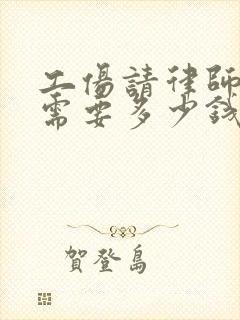 工傷請律師
需要多少錢
賀登島